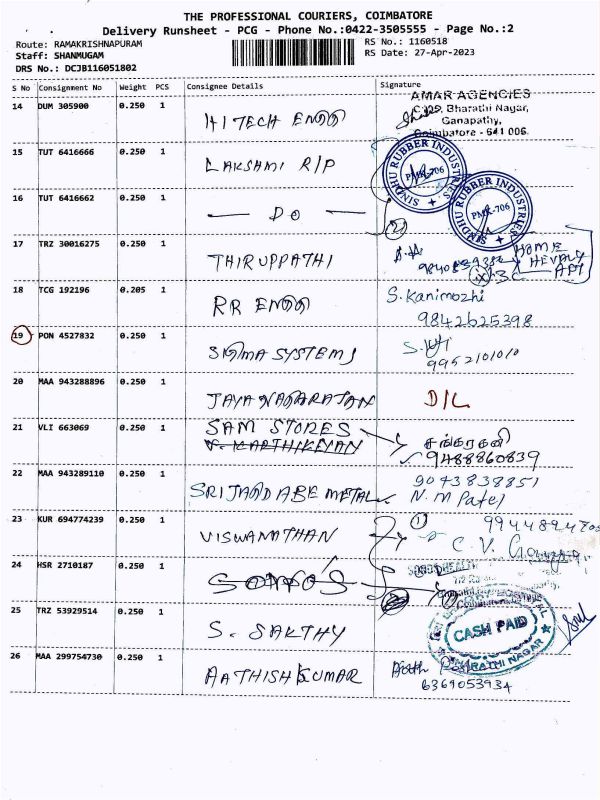 THE PROFESSIONAL COURIERS, COIMBATORE
Delivery Runsheet - PCG - Phone No.:0422-3505555 - Page No.:2
Route: RAMAKRISHNAPURAM
RS No.: 1160518
Staff: SHANMUGAM
RS Date: 27-Apr-2023
DRS No.: DCJB116051802
S No Consignment No Weight PCS Consignee Details Signature
14 DUM 305900 0.250 1 HITECH ENGG
AMAR AGENCIES
Bharathi Nagar,
Ganapathy,
Coimbatore - 641 006.
15 TUT 6416666 0.250 1 LAKSHMI R/P
SINDHU RUBBER INDUSTRIES
PMR-706
16 TUT 6416662 0.250 1 — DO —
SINDHU RUBBER INDUSTRIES
PMR-706
2
17 TRZ 30016275 0.250 1 THIRUPPATHI
HOME
18 TCG 192196 0.205 1 RR ENGG S.Kanimozhi
9842625398
19 PON 4527832 0.250 1 SIGMA SYSTEMS
9952101010
20 MAA 943288896 0.250 1 JAYA NAGARATAN D/L
21 VLI 663069 0.250 1 SAM STORES
V. KARTHIKEYAN
சங்கரகனி
9488860839
22 MAA 943289110 0.250 1 9043838851
N.M Patel
23 KUR 694774239 0.250 1 VISWANATHAN
1
C.V.
24 HSR 2710187 0.250 1
25 TRZ 53929514 0.250 1 S. SAKTHY
CASH PAID
BHARATHI NAGAR
26 MAA 299754730 0.250 1 AATHISHKUMAR
6369053934